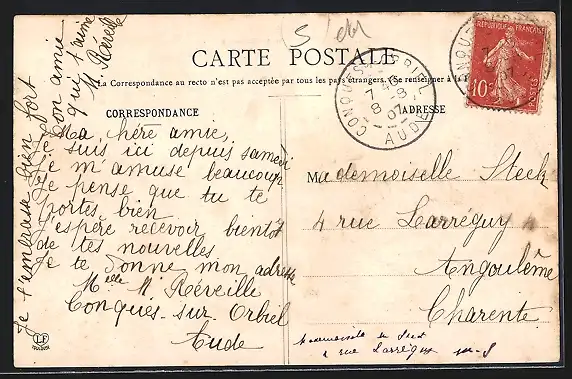 CARTE POSTALE
La Correspondance au recto n'est pas acceptée par tous les pays étrangers. (Se renseigner à la
CORRESPONDANCE
ADRESSE
Ma chére amie,
Je suis ici depuis samedi
Je m'amuse beaucoup
Je pense que tu te
portes bien
J'espère recevoir bientôt
de tes nouvelles
Je te donne mon adresse
Melle M. Réveille
Conques-sur-Orbiel
Aude
Je t'embrasse bien fort
Ton amie
qui t'aime
M. Réveille
Mademoiselle Steek
4 rue Larréguy 4
Angoulême
Charente
4 rue Larréguy
REPUBLIQUE FRANÇAISE
10
POSTES
CONQUES-SUR-ORBIEL
7-8
07
AUDE
LF